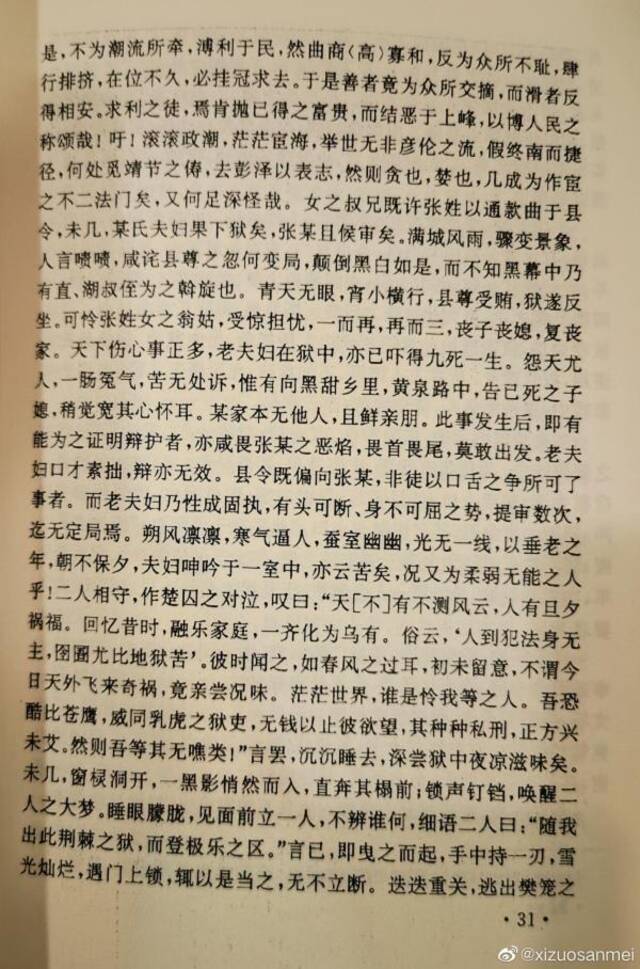 是，不为潮流所牵，溥利于民，然曲商〈高〉寡和，反为众所不耻，肆
行排挤，在位不久，必挂冠求去。于是善者竟为众所交摘，而滑者反
得相安。求利之徒，焉肯抛已得之富贵，而结恶于上峰，以博人民之
称颂哉！吁！滚滚政潮，茫茫宦海，举世无非彦伦之流，假终南而捷
径，何处觅靖节之俦，去彭泽以表志，然则贪也，婪也，几成为作宦
之不二法门矣，又何足深怪哉。女之叔兄既许张姓以通款曲于县
令，未几，某氏夫妇果下狱矣，张某且候审矣。满城风雨，骤变景象，
人言啧啧，咸诧县尊之忽何变局，颠倒黑白如是，而不知黑幕中乃
有直、湖叔侄为之斡旋也。青天无眼，宵小横行，县尊受贿，狱遂反
坐。可怜张姓女之翁姑，受惊担忧，一而再，再而三，丧子丧媳，复丧
家。天下伤心事正多，老夫妇在狱中，亦已吓得九死一生。怨天尤
人，一肠冤气，苦无处诉，惟有向黑甜乡里，黄泉路中，告已死之子
媳，稍觉宽其心怀耳。某家本无他人，且鲜亲朋。此事发生后，即有
能为之证明辩护者，亦咸畏张某之恶焰，畏首畏尾，莫敢出发。老夫
妇口才素拙，辩亦无效。县令既偏向张某，非徒以口舌之争所可了
事者。而老夫妇乃性成固执，有头可断、身不可屈之势，提审数次，
迄无定局焉。朔风凛凛，寒气逼人，蚕室幽幽，光无一线，以垂老之
年，朝不保夕，夫妇呻吟于一室中，亦云苦矣，况又为柔弱无能之人
乎！二人相守，作楚囚之对泣，叹曰：“天[不]有不测风云，人有旦夕
祸福。回忆昔时，融乐家庭，一齐化为乌有。俗云，‘人到犯法身无
主，囹圄尤比地狱苦’。彼时闻之，如春风之过耳，初未留意，不谓今
日天外飞来奇祸，竟亲尝况味。茫茫世界，谁是怜我等之人。吾恐
酷比苍鹰，威同乳虎之狱吏，无钱以止彼欲望，其种种私刑，正方兴
未艾。然则吾等其无噍类！”言罢，沉沉睡去，深尝狱中夜凉滋味矣。
未几，窗棂洞开，一黑影悄然而入，直奔其榻前；锁声钉铛，唤醒二
人之大梦。睡眼朦胧，见面前立一人，不辨谁何，细语二人曰：“随我
出此荆棘之狱，而登极乐之区。”言已，即曳之而起，手中持一刃，雪
光灿烂，遇门上锁，辄以是当之，无不立断。迭迭重关，逃出樊笼之
·31·
@xizuosanmei